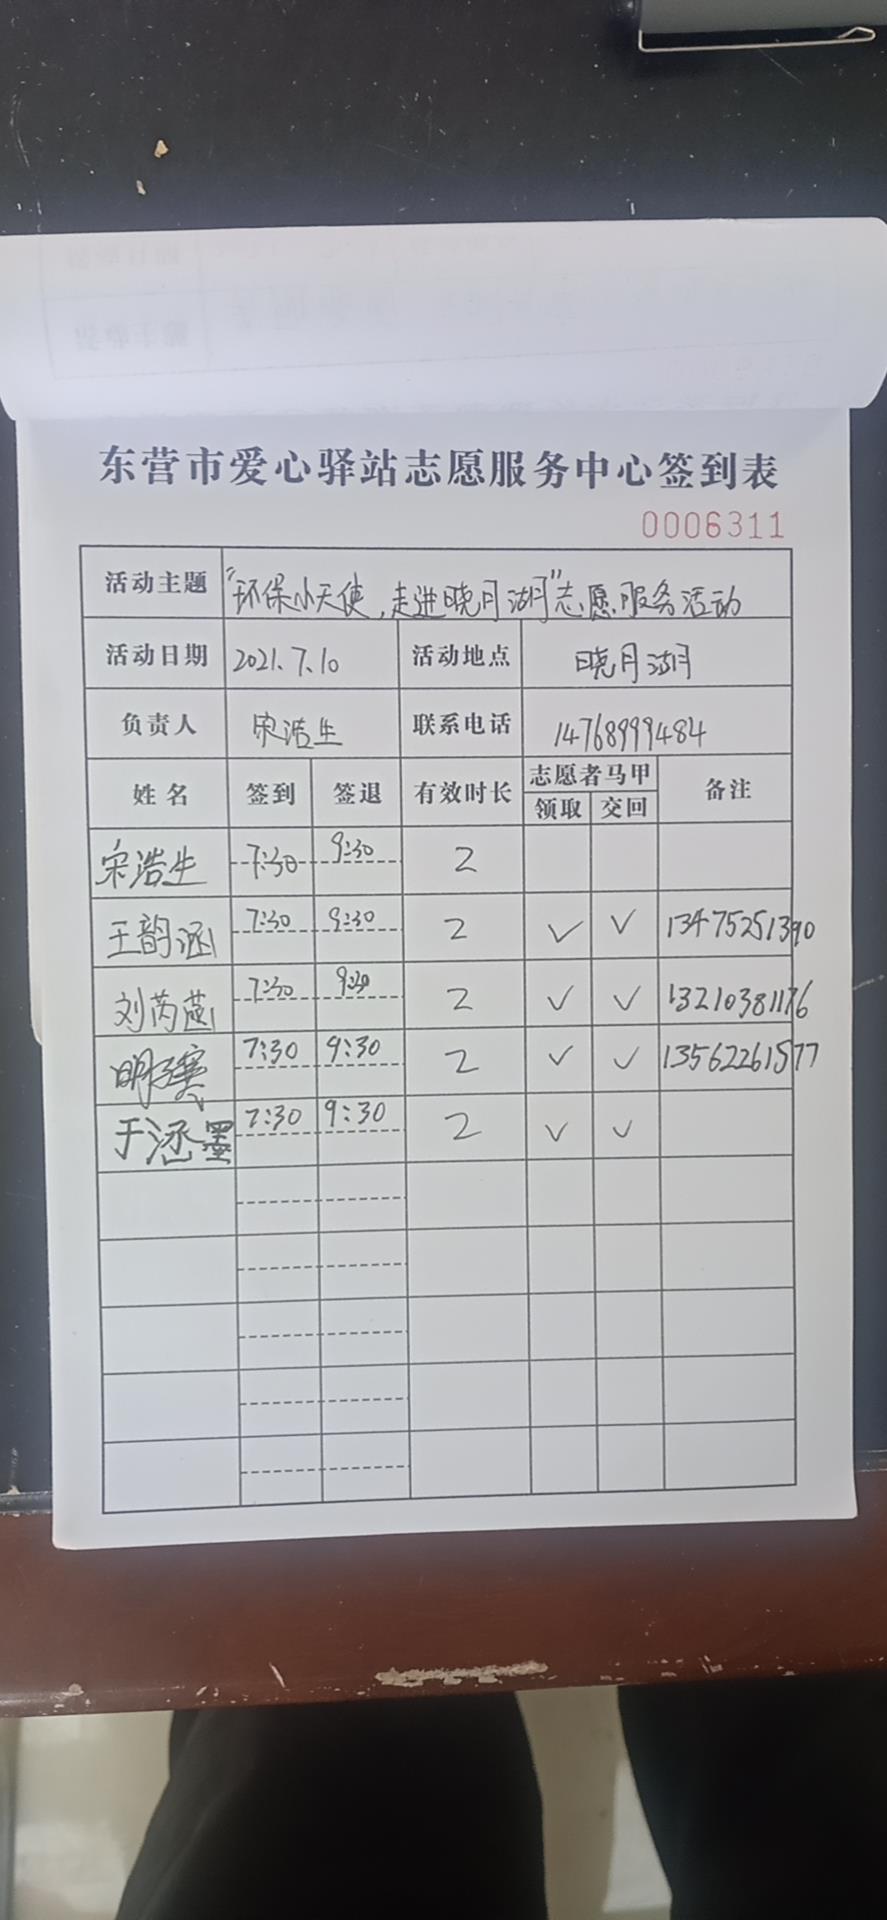 东营市爱心驿站志愿服务中心签到表
0006311
活动主题 “环保小天使,走进晓月湖”志愿服务活动
活动日期 2021.7.10 活动地点 晓月湖
负责人 宋浩生 联系电话 14768999484
姓名 签到 签退 有效时长 志愿者马甲 备注
领取 交回
宋浩生 7:30 9:30 2
王韵涵 7:30 9:30 2 ✓ ✓ 13475251390
刘芮菡 7:30 9:30 2 ✓ ✓ 13210381176
7:30 9:30 2 ✓ ✓ 13562261577
于涵墨 7:30 9:30 2 ✓ ✓